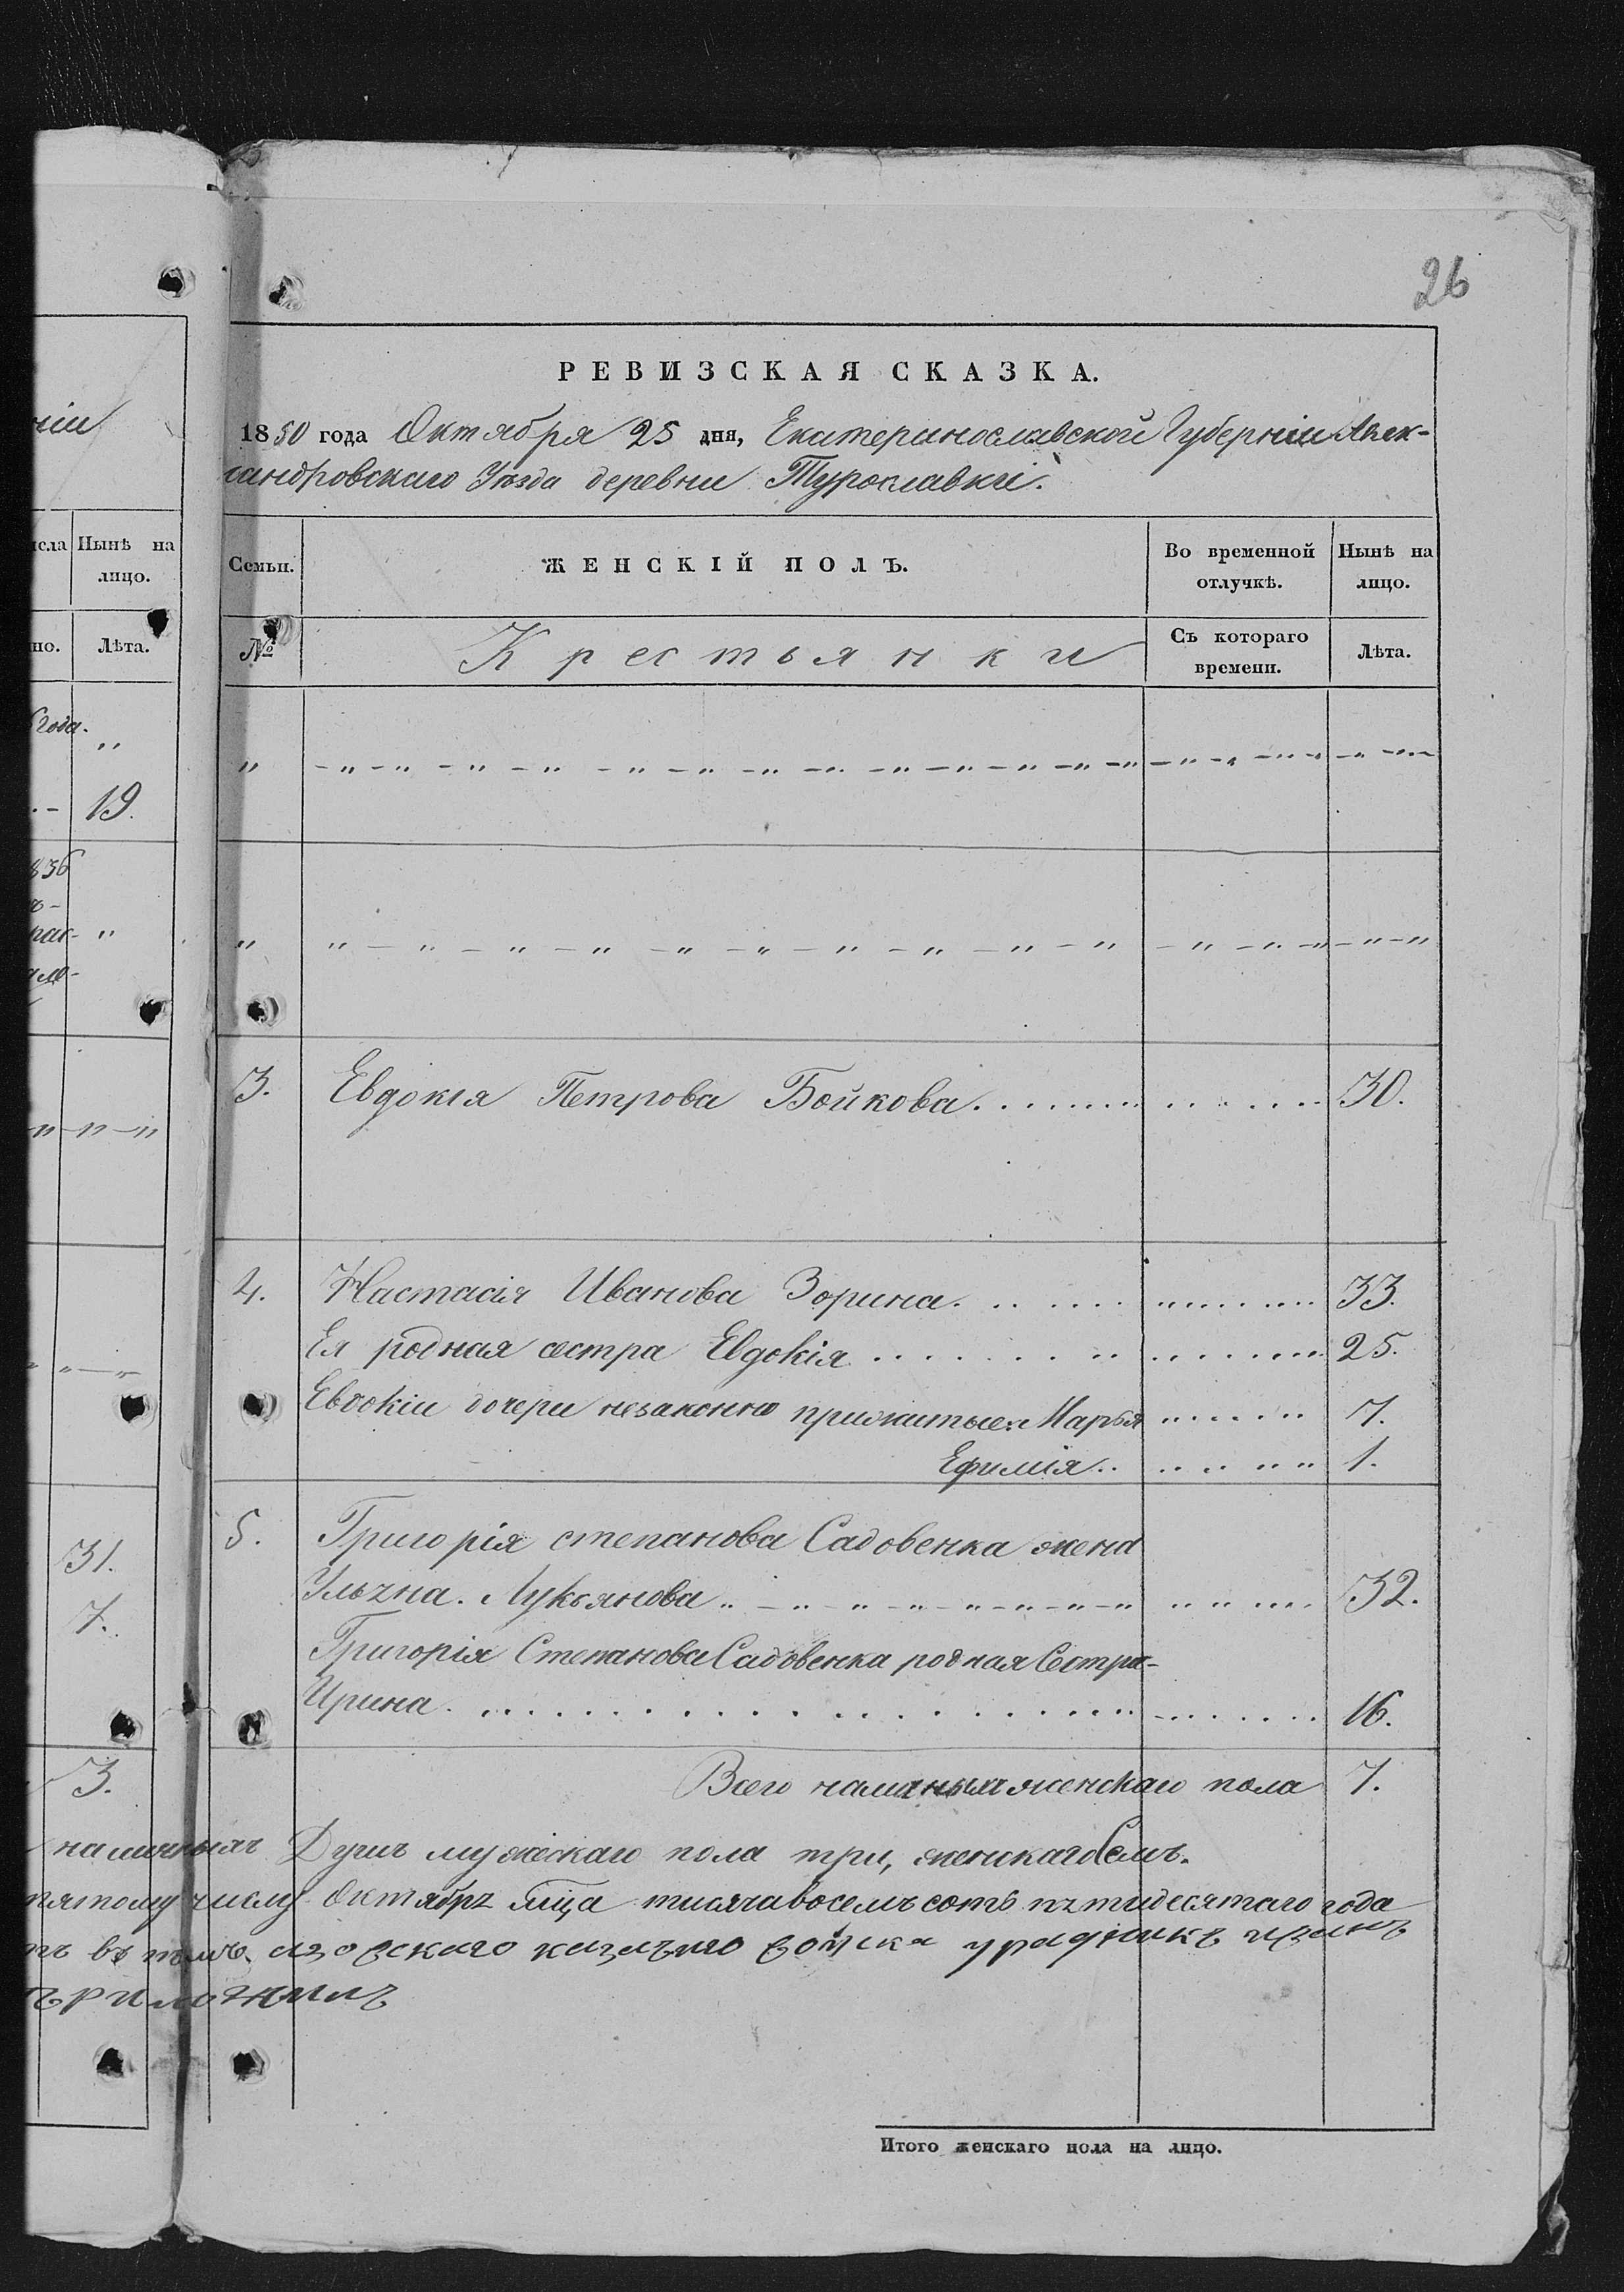 26
РЕВИЗСКАЯ СКАЗКА.
1850 года Октября 25 дня, Екатеринославской Губерніи Алек-
сандровскаго Уѣзда деревни Турославкѣ.
нія
исла
Нынѣ на лицо.
но.
Лѣта.
Семьи.
ЖЕНСКІЙ ПОЛЪ.
Во временной отлучкѣ.
Нынѣ на лицо.
№
Крестьянки
Съ котораго времени.
Лѣта.
года. „
„ — „ — „ — „ — „ — „
19.
836
„
„ — „ — „ — „ — „ — „
3. Евдокія Петрова Бойкова 30.
4. Настасія Иванова Зорина 33.
Ея родная сестра Евдокія 25.
Евдокіи дочери незаконно прижитые: Марья 7.
Ефимія 1.
31.
5. Григорія степанова Садовенка жена
7.
Ульяна Лукьянова 32.
Григорія Степанова Садовенка родная Сестра-
Ирина 16.
3.
Всего наличныхъ женскаго пола 7.
наличныхъ Душъ мужескаго пола три, женскаго Семь.
пятому числу Октября мѣсца тысяча восемъ сотъ пятидесятаго года
въ томъ азовскаго казачьяго войска урядникъ
приложилъ
Итого женскаго пола на лицо.